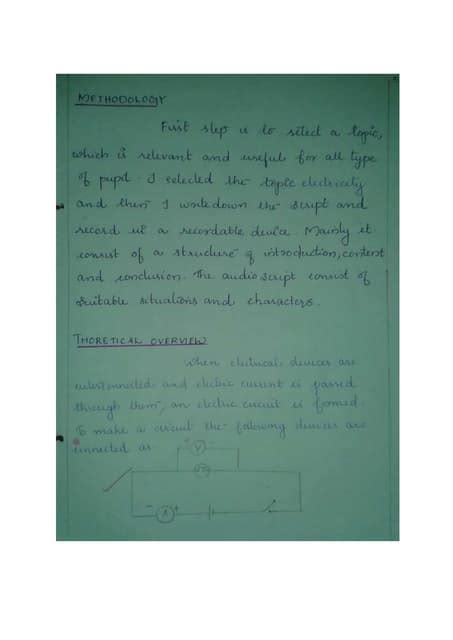 METHODOLOGY
First step is to select a topic,
which is relevant and useful for all type
of pupil. I selected the topic electricity
and then I writedown the script and
record it a recordable device. Mainly it
consist of a structure of introduction, content
and conclusion. The audio script consist of
suitable situations and characters.
THORETICAL OVERVIEW
When electrical devices are
and electric current is passed
through them, an electric circuit is formed.
To make a circuit the following devices are
connected as
+ V -
- A +